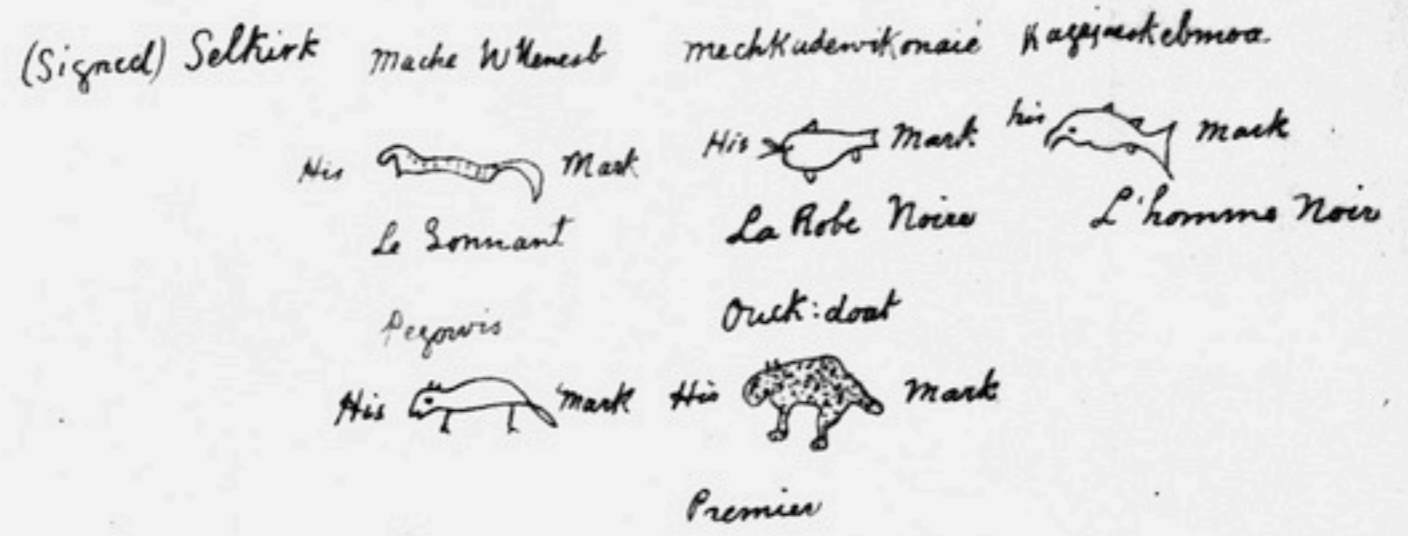 (Signed) Selkirk Mache Wheneab MechKudewiKonaie Kagajieskebmoa.
His Mark His Mark his Mark
Le Sonnant La Robe Noire L'homme Noir
Pegowis Ouck:doat
His Mark His Mark
Premier